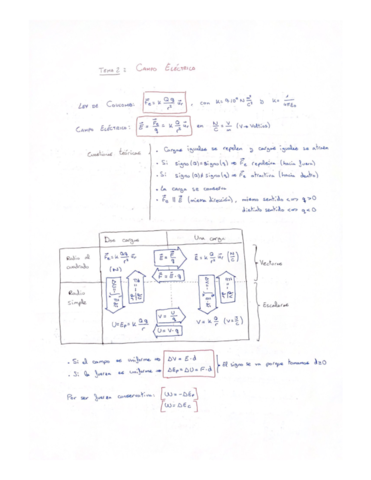 TEMA 2: CAMPO ELÉCTRICO
LEY DE COULOMB: F⃗e = k Qq/r² u⃗r , con k = 9·10⁹ N m²/C² o k = 1/4πε₀
CAMPO ELÉCTRICO: E⃗ = F⃗e/q = k Q/r² u⃗r en N/C = V/m (V → Voltios)
Cuestiones teóricas
• Cargas iguales se repelen y cargas iguales se atraen
• Si signo(Q) = signo(q) ⇒ F⃗e repulsiva (hacia fuera)
• Si signo(Q) ≠ signo(q) ⇒ F⃗e atractiva (hacia dentro)
• La carga se conserva
• F⃗e ∥ E⃗ (misma dirección), mismo sentido q > 0
distinto sentido q < 0
Dos cargas Una carga
Radio al cuadrado
F⃗e = k Qq/r² u⃗r (N) E⃗ = F⃗/q E⃗ = k Q/r² u⃗r (N/C)
F⃗ = E⃗·q
Vectores
Radio simple
U = Ep = k Qq/r V = U/q V = k Q/r
U = V·q
Escalares
• Si el campo es uniforme ⇒ ΔV = E·d
• Si la fuerza es uniforme ⇒ ΔEp = ΔU = F·d
El signo se va porque tomamos d≥0
Por ser fuerza conservativa: W = -ΔEp
W = ΔEc